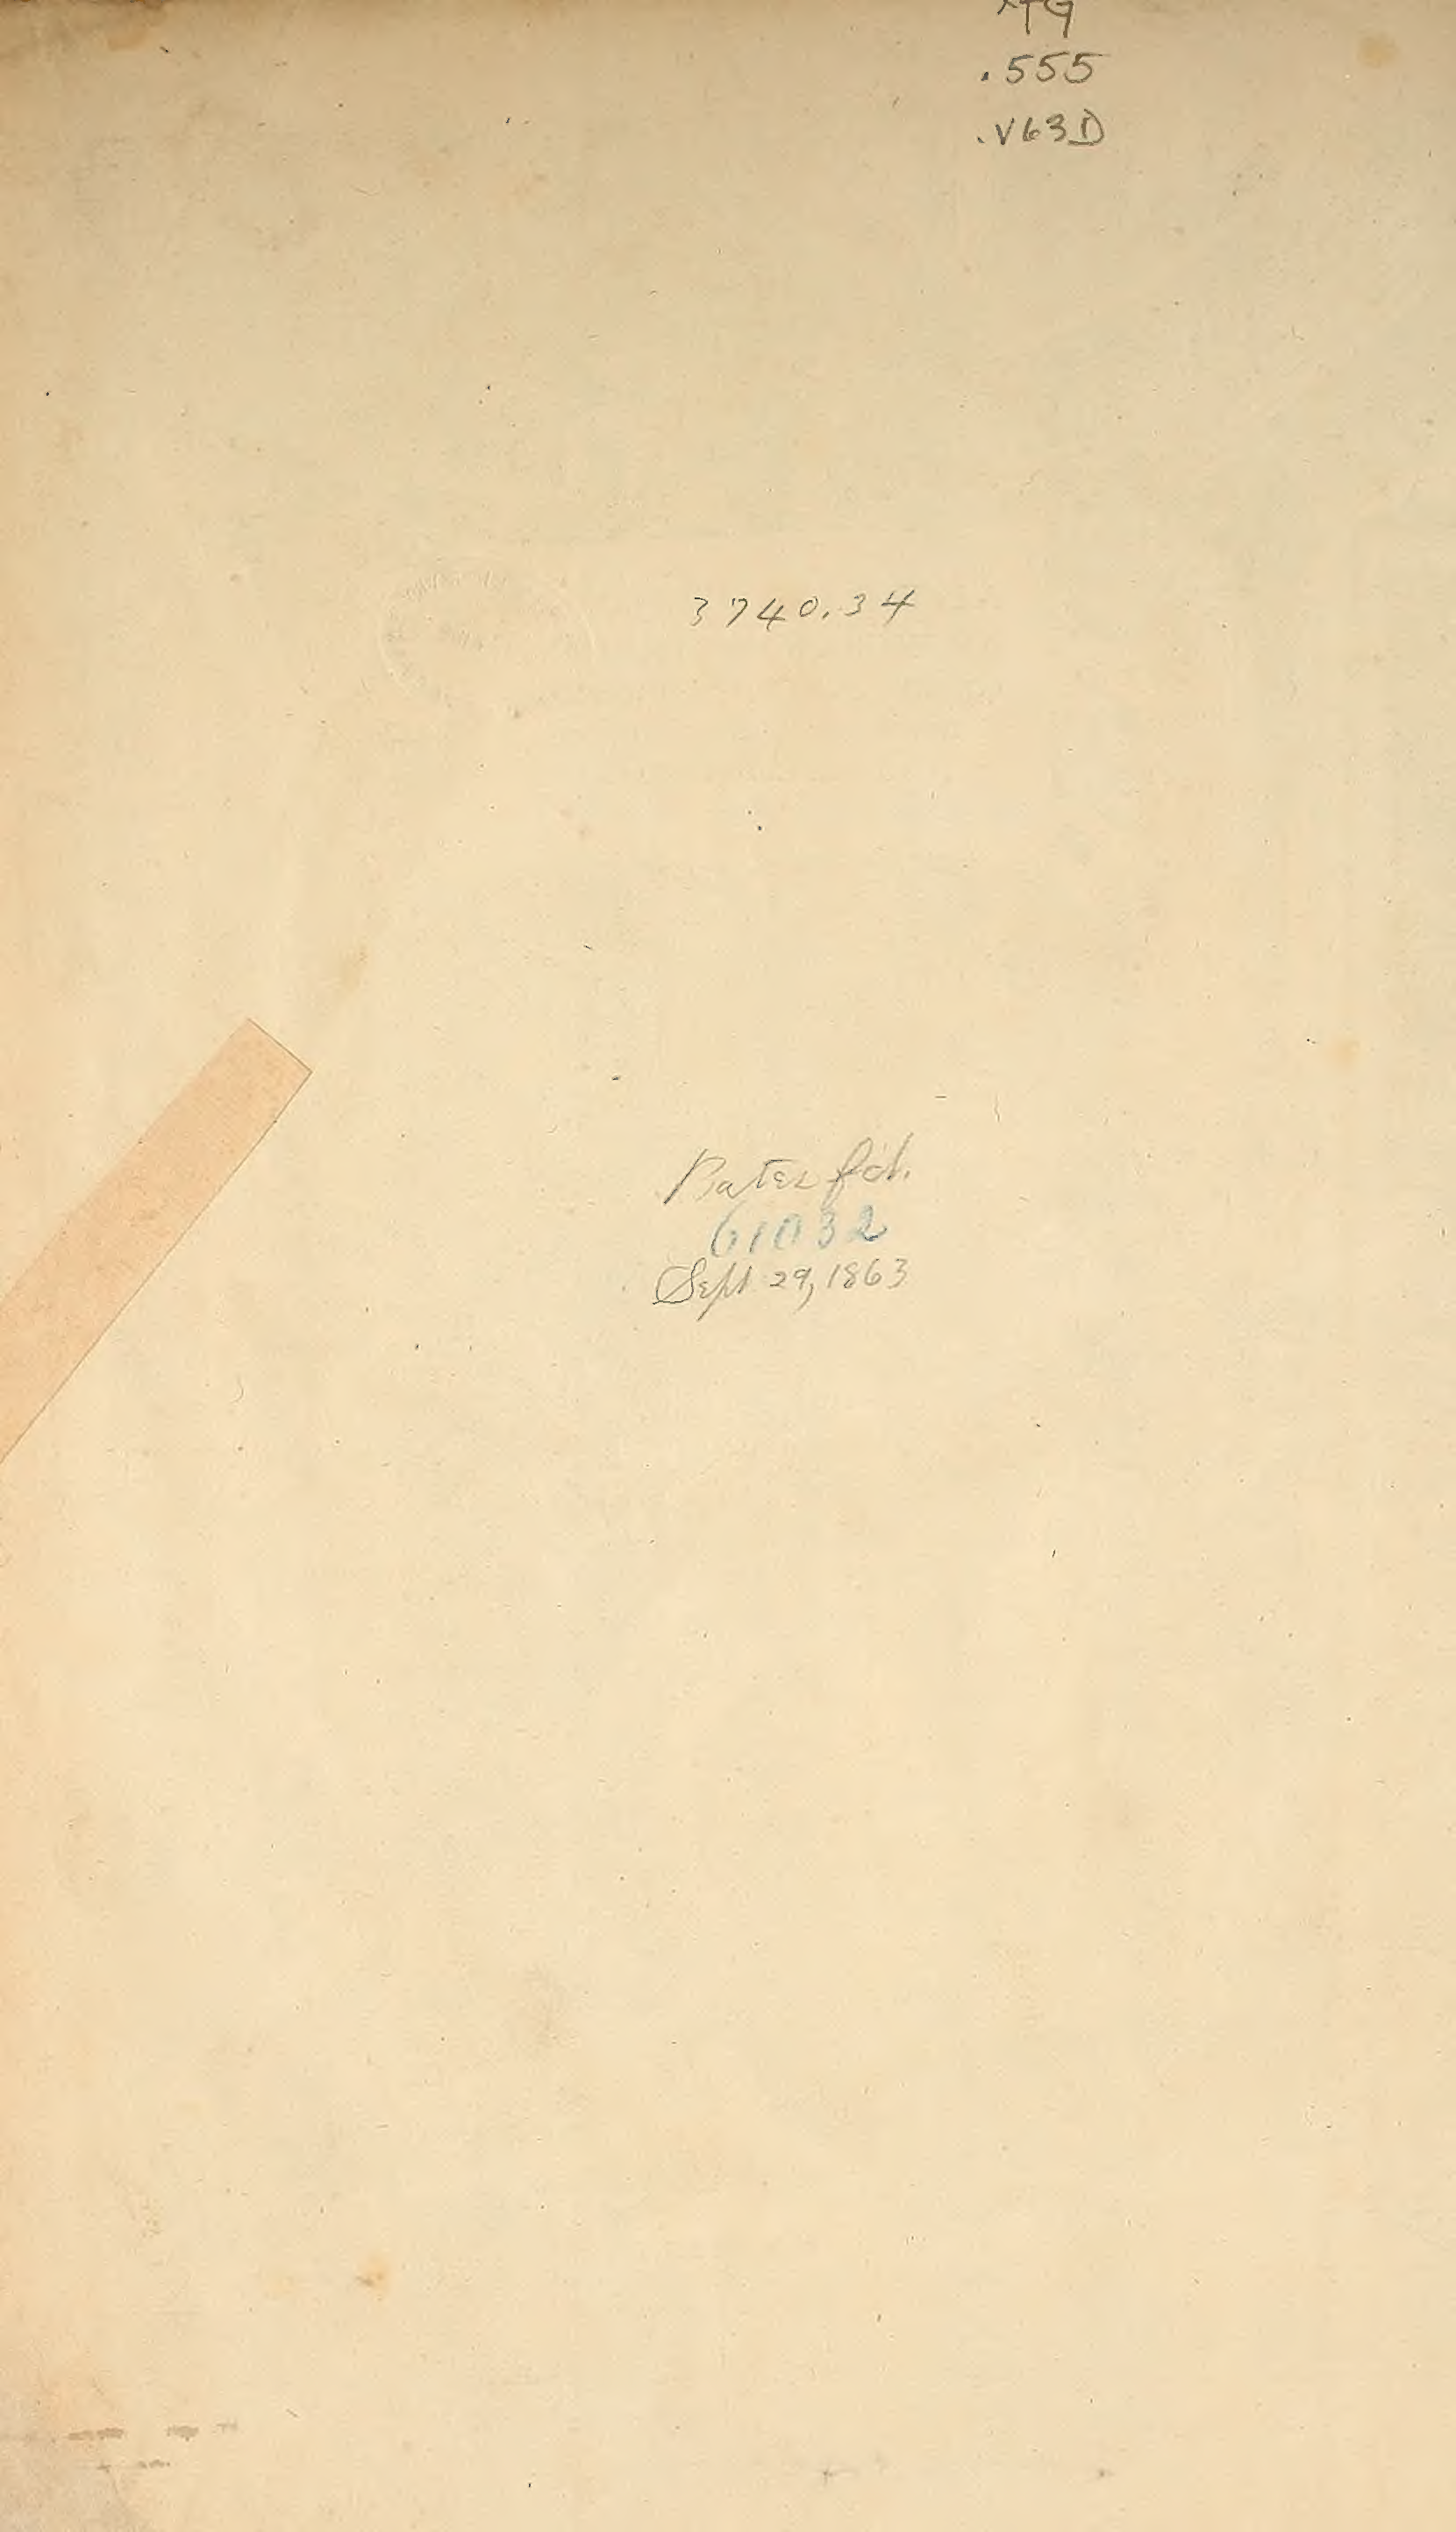 .555
.V63D
3740.34
Bates fd.
61032
Sept 29, 1863